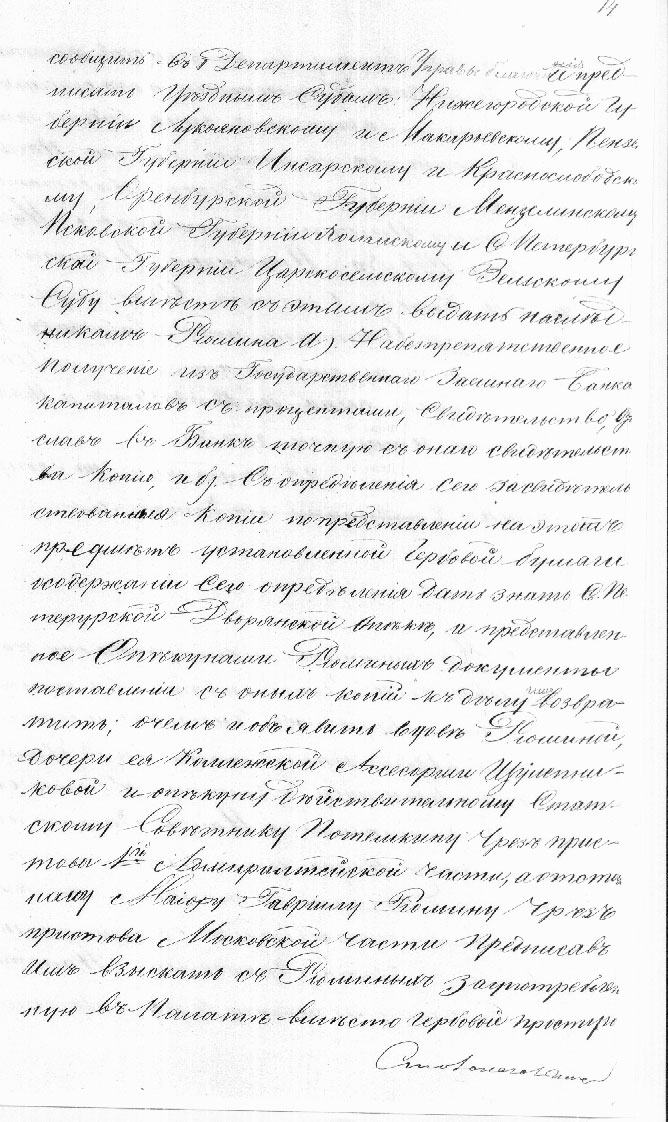 14
сообщить въ Департаментъ Управы благочинія и пред-
писать Уѣзднымъ Судамъ: Нижегородской Гу
берніи Лукояновскому и Макарьевскому, Пензе
ской Губерніи Инсарскому и Краснослободск
му, Оренбургской Губерніи Мензелинскому
Псковской Губерніи Холмскому и С Петербург
ской Губерніи Царскосельскому Земскому
Суду вмѣстѣ съ этимъ выдать наслѣд-
никамъ Рюмина а) На безпрепятственное
Полученіе изъ Государственнаго Заемнаго Банка
капиталовъ съ процентами, Свидѣтельство,
славъ въ Банкъ точную съ онаго свидѣтельст
ва Копію, и б) Съ опредѣленія сего засвидѣтель
ствованныя Копіи по представленіи на этотъ
предметъ установленной гербовой бумаги
о содержаніи Сего опредѣленія дать знать С. Пе
терурской Дворянской Опекѣ, и представлен-
ное Опѣкунами Рюминыхъ документы
по ставленіи съ оныхъ копій къ дѣлу имъ возвра-
тить; о чемъ и объявить вдовѣ Рюминой,
дочери ея Коллежской Ассесорши Шулепни-
ковой и опѣкуну Дѣйствительному Стат-
скому Совѣтнику Потемкину Чрезъ прис-
това 1й Адмиралтейской части, а отста
ному Маіору Гаврилу Рюмину Чрезъ
пристава Московской Части Предписавъ
Имъ взыскать съ Рюминыхъ за употреблен
ную въ Палатѣ вмѣсто гербовой простую